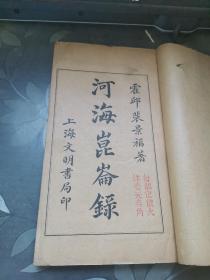 霍邱裴景福著
河海崑崙錄
上海文明書局印